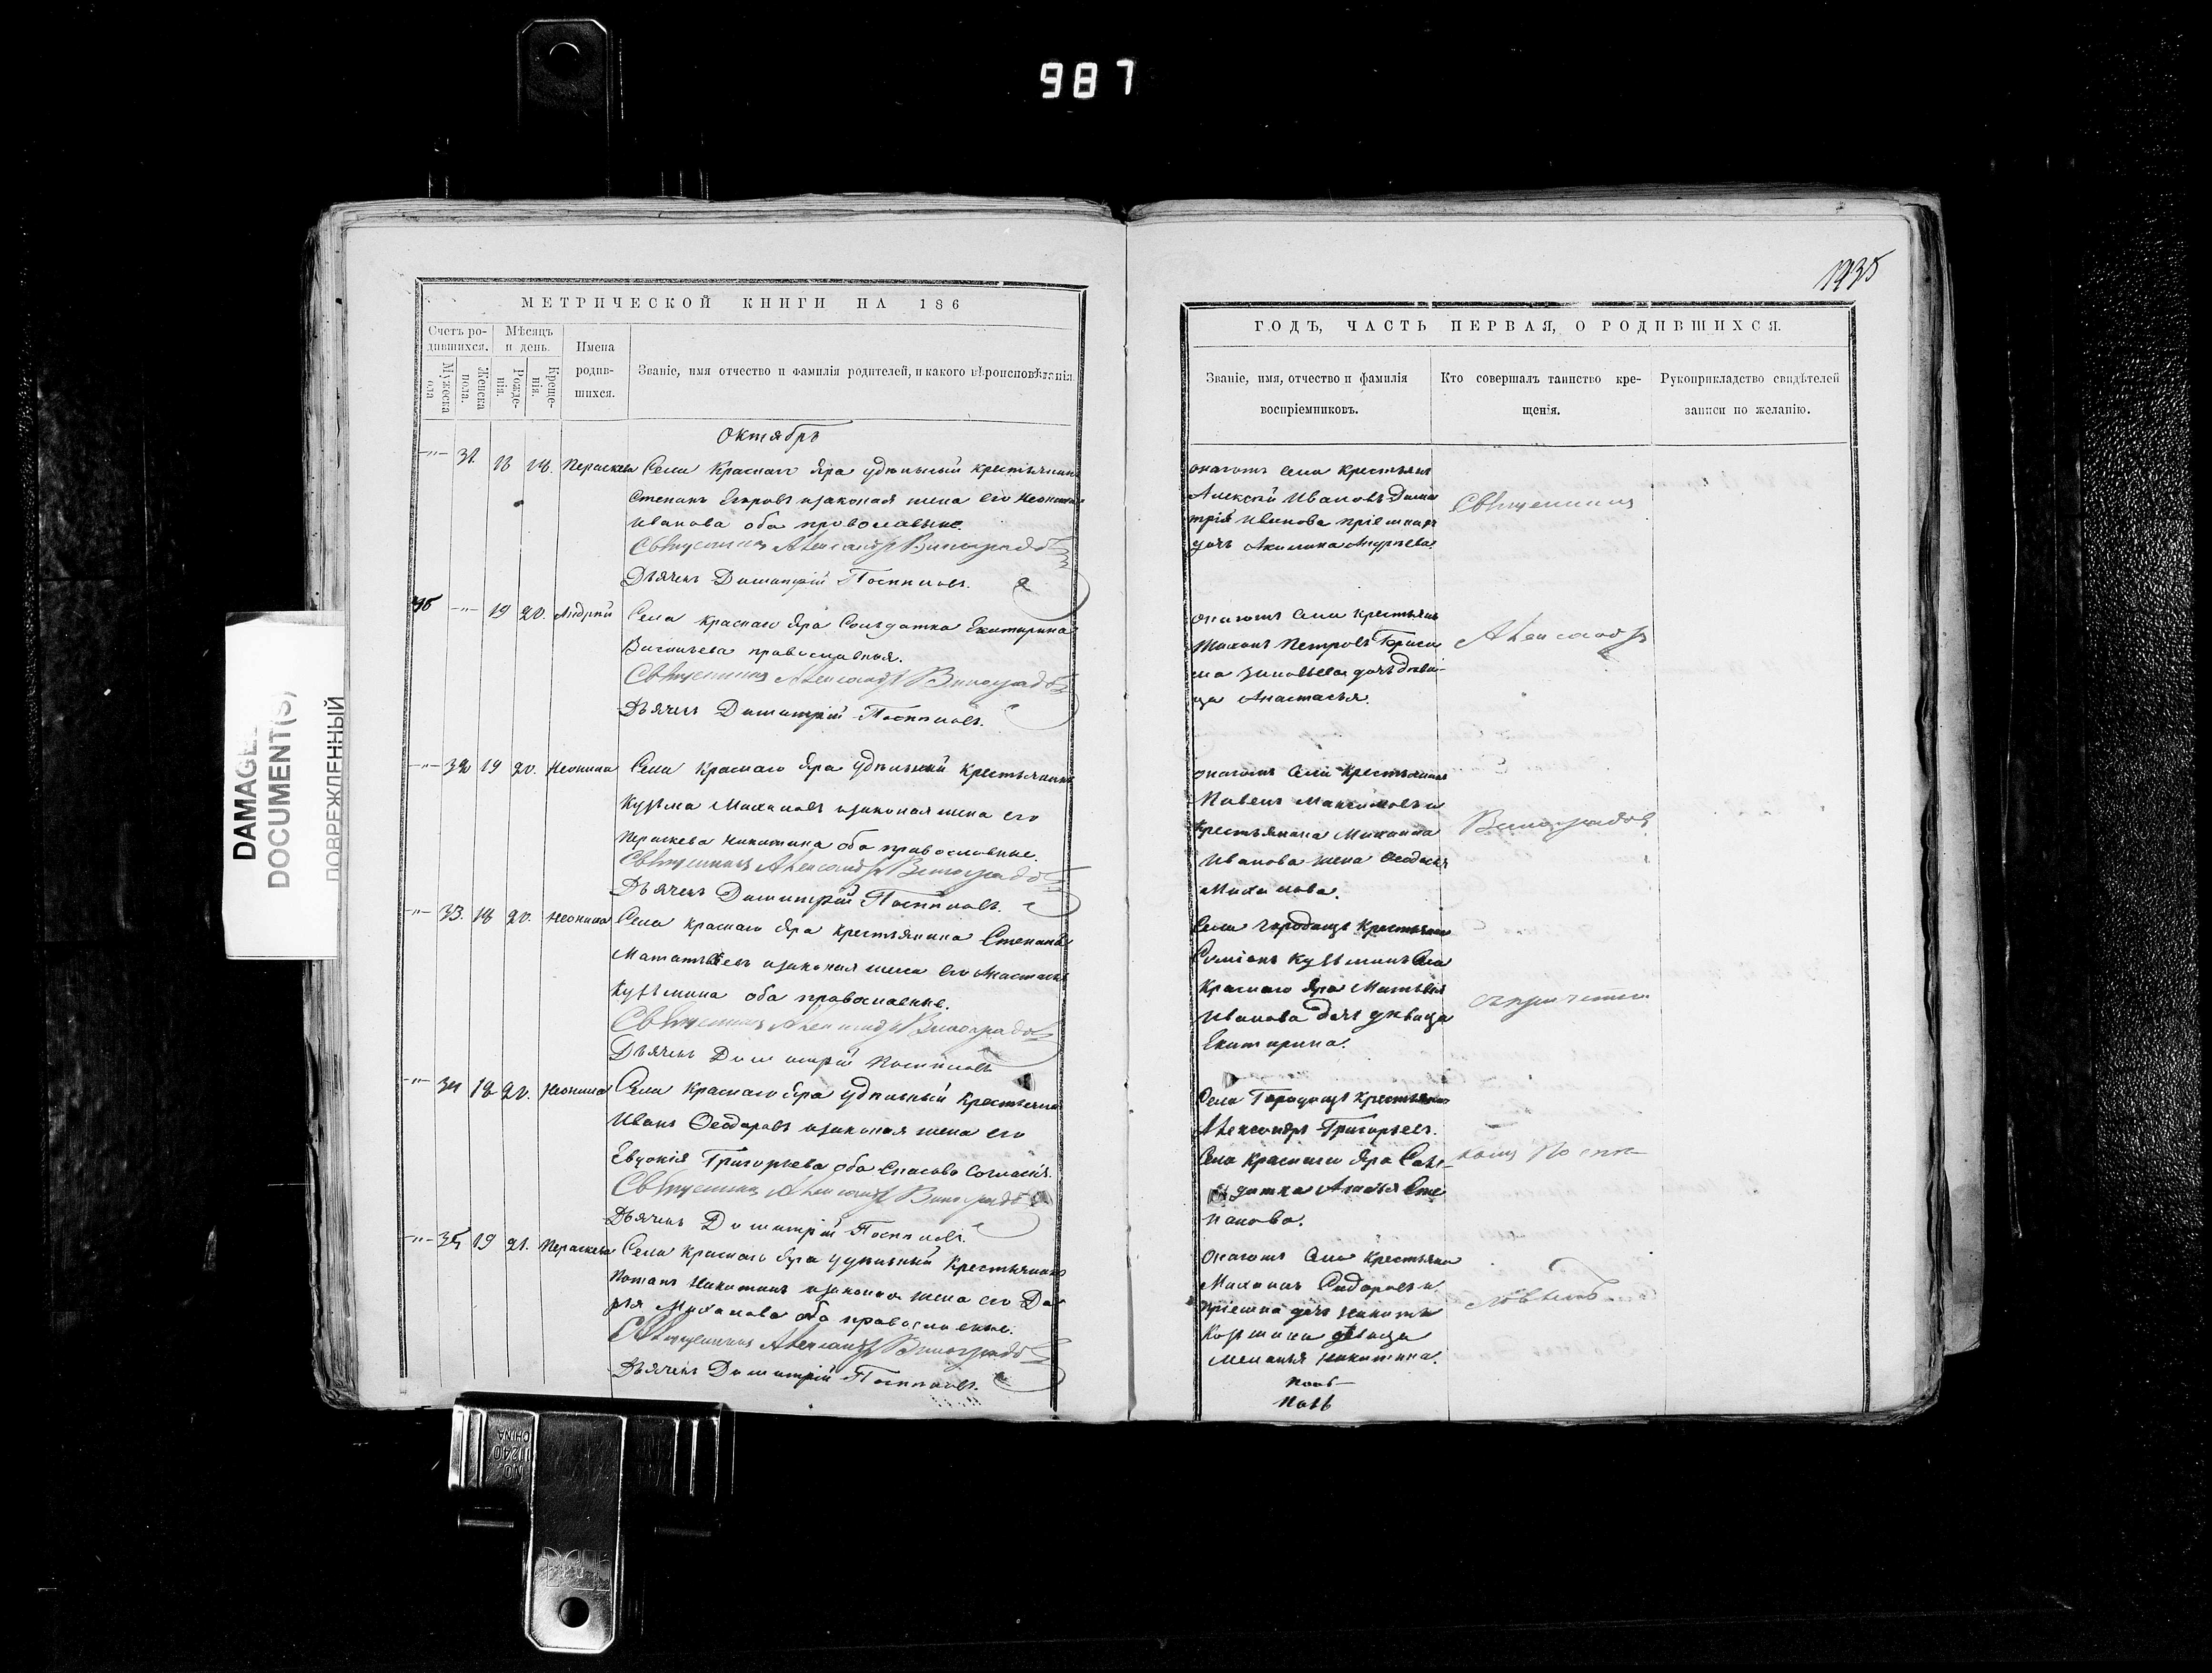 987
1435
МЕТРИЧЕСКОЙ КНИГИ НА 186
Счетъ ро-
дившихся.
Мѣсяцъ
и день.
Мужеска
пола
Женска
пола.
Рожде-
нія.
Креще-
нія.
Имена
родив-
шихся.
Званіе, имя отчество и фамилія родителей, и какого вѣроисповѣданія
Октябрь
31. 18 18. Параскева Села Краснаго Яра удѣльный крестьянинъ
Степанъ Егоровъ изаконая жена его
Иванова оба православные.
Священникъ Александръ Виноградовъ
Дьячекъ Димитрій Поспѣловъ.
36 19 20. Андрей Села Краснаго Яра Солдатка Екатерина
православная.
Священникъ Александръ Виноградовъ
Дьячекъ Димитрій Поспѣловъ.
32 19 20. Неонила Села Краснаго Яра Удѣльный Крестьянинъ
Кузьма Михаиловъ изаконая жена его
Параскева Никитина оба православные.
Священникъ Александръ Виноградовъ
Дьячекъ Димитрій Поспѣловъ.
33. 18 20. Неонила Села Краснаго Яра Крестьянина Степанъ
изаконая жена его Анастасья
Кузьмина оба православные.
Священникъ Александръ Виноградовъ
Дьячекъ Димитрій Поспѣловъ
34 18 20. Неонила Села Краснаго Яра Удѣльный Крестьянинъ
Иванъ Ѳеодоровъ изаконая жена его
Евдокія Григорьева оба Спасова Согласія.
Священникъ Александръ Виноградовъ
Дьячекъ Димитрій Поспѣловъ.
35 19 21. Параскева Села Краснаго Яра Удѣльный Крестьянинъ
Потапъ Никитинъ изаконая жена его Да
рья Михаилова оба православные.
Священникъ Александръ Виноградовъ
Дьячекъ Димитрій Поспѣловъ.
ГОДЪ, ЧАСТЬ ПЕРВАЯ, О РОДИВШИХСЯ.
Званіе, имя, отчество и фамилія
воспріемниковъ.
Кто совершалъ таинство кре-
щенія.
Рукоприкладство свидѣтелей
записи по желанію.
онагожъ села крестьянъ
Алексѣй Ивановъ Дими
трія Иванова
дочь Акилина Андреева.
онагожъ села крестьянъ
Петровъ
Зиновьева дочь дѣви-
ца Анастасья.
онагожъ села крестьянинъ
Павелъ Максимовъ и
крестьянина Михаила
Иванова жена Ѳеодосья
Михаилова.
Села Городищъ Крестьянинъ
Симіонъ Кузьминъ Села
Краснаго Яра Матвѣя
Иванова дочь дѣвица
Екатерина.
Села Городищъ Крестьянинъ
Александръ Григорьевъ.
Села Краснаго Яра Сол-
датка Сте
панова.
Онагожъ села крестьянинъ
Михаилъ Сидоровъ и
дочь
Козьмина дѣвица
Меланья Никитина.
Священникъ
Александръ
Виноградовъ
съ причетни
комъ Поспѣ-
ловымъ
DAMAGED
DOCUMENT(S)
ПОВРЕЖДЕННЫЙ
NO.
11240
CHINA